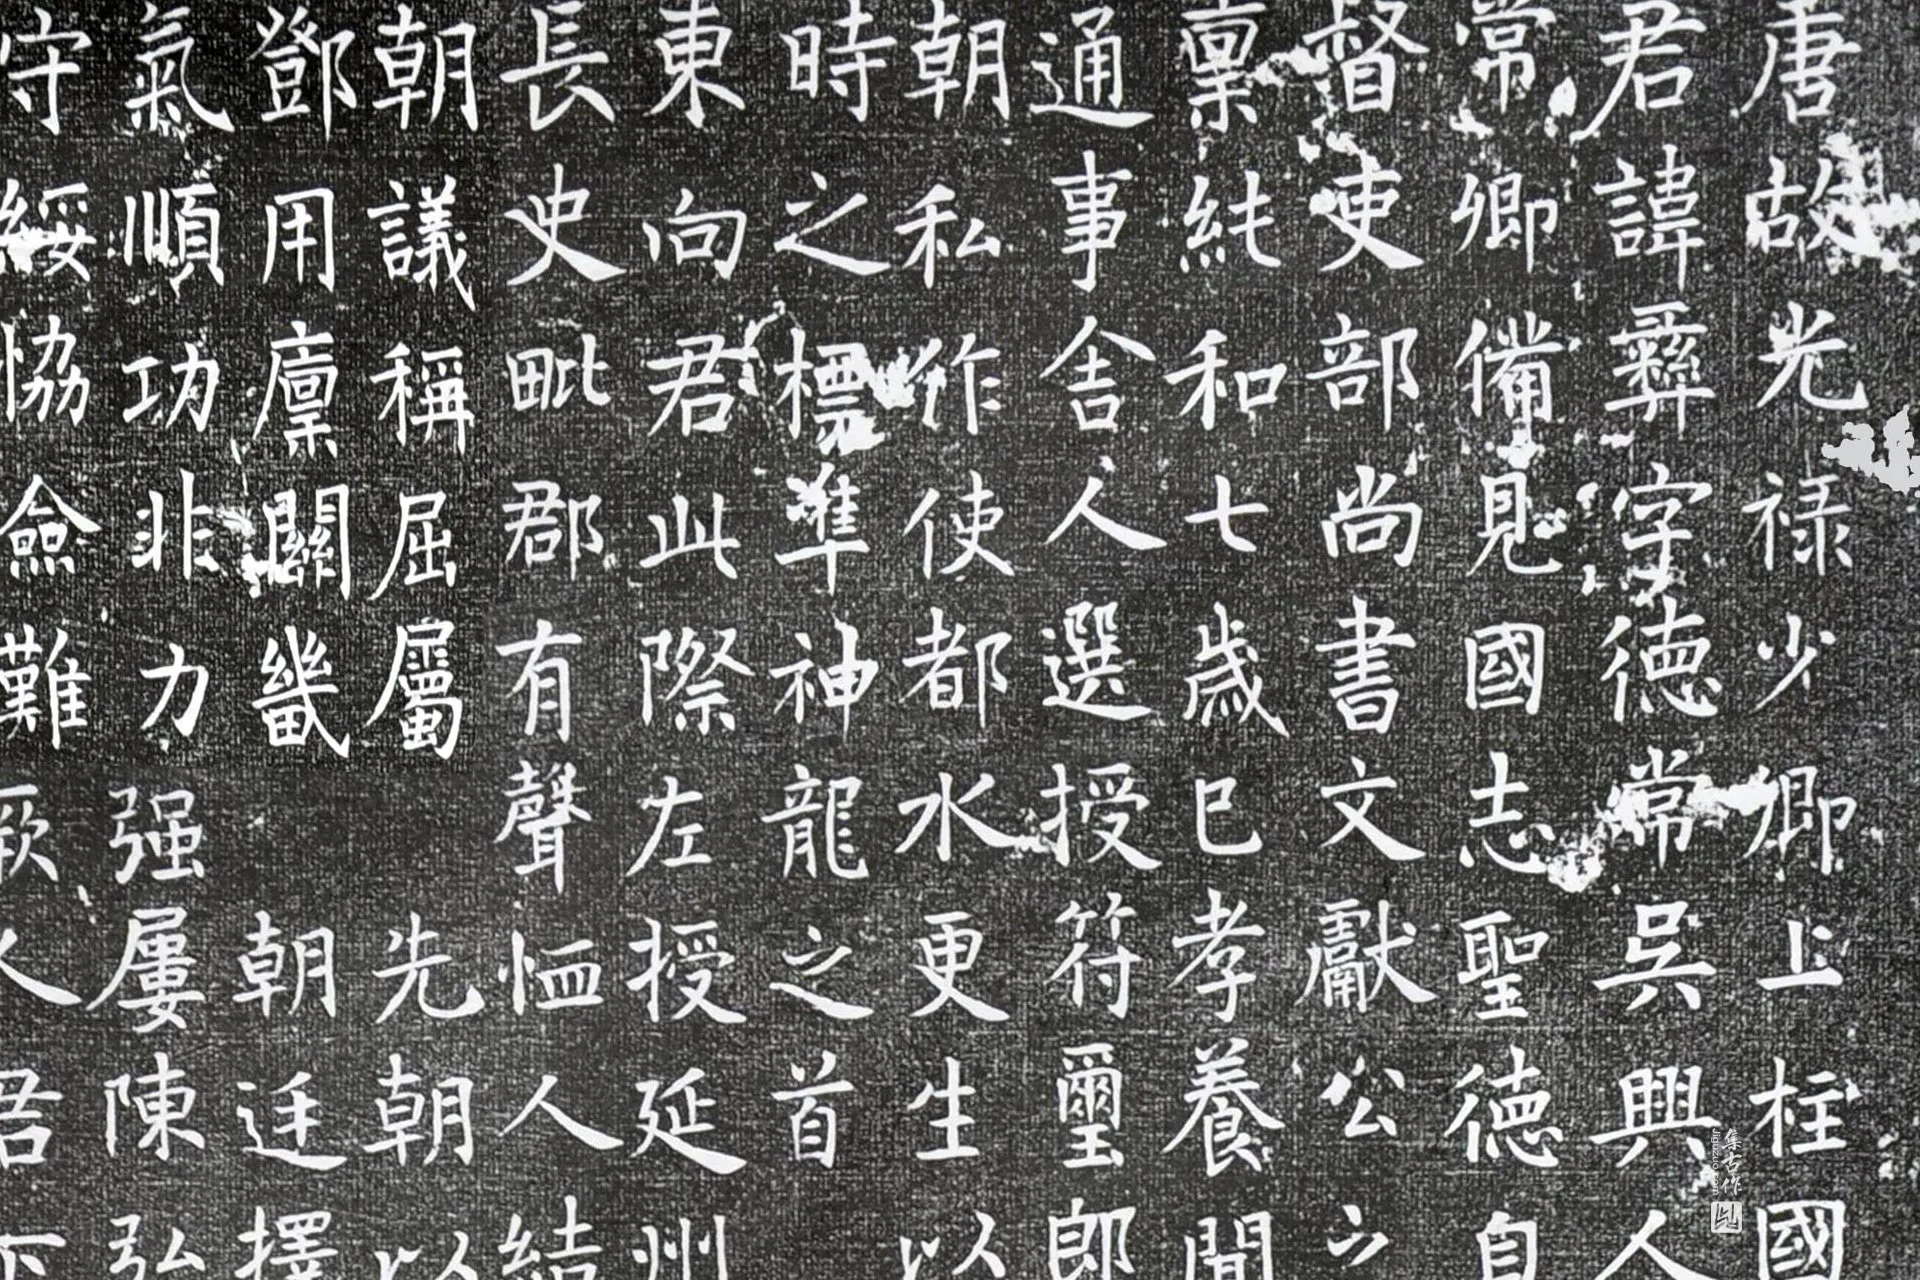 唐故光禄少卿上柱國
君諱彝字德常吳興人
常卿備見國志聖德自
督吏部尚書文獻公
稟純和七歲已孝養聞
通事舍人選授符璽郎
朝私作使都水更生以
時之標準神龍之首
東向君此際左授延州
長史毗郡有聲恤人結
朝議稱屈屬先朝以
鄧用廩關畿朝廷擇
氣順功非力强屢陳弘
守綏恊僉難厥人君下
集古作
jiguzuo.com